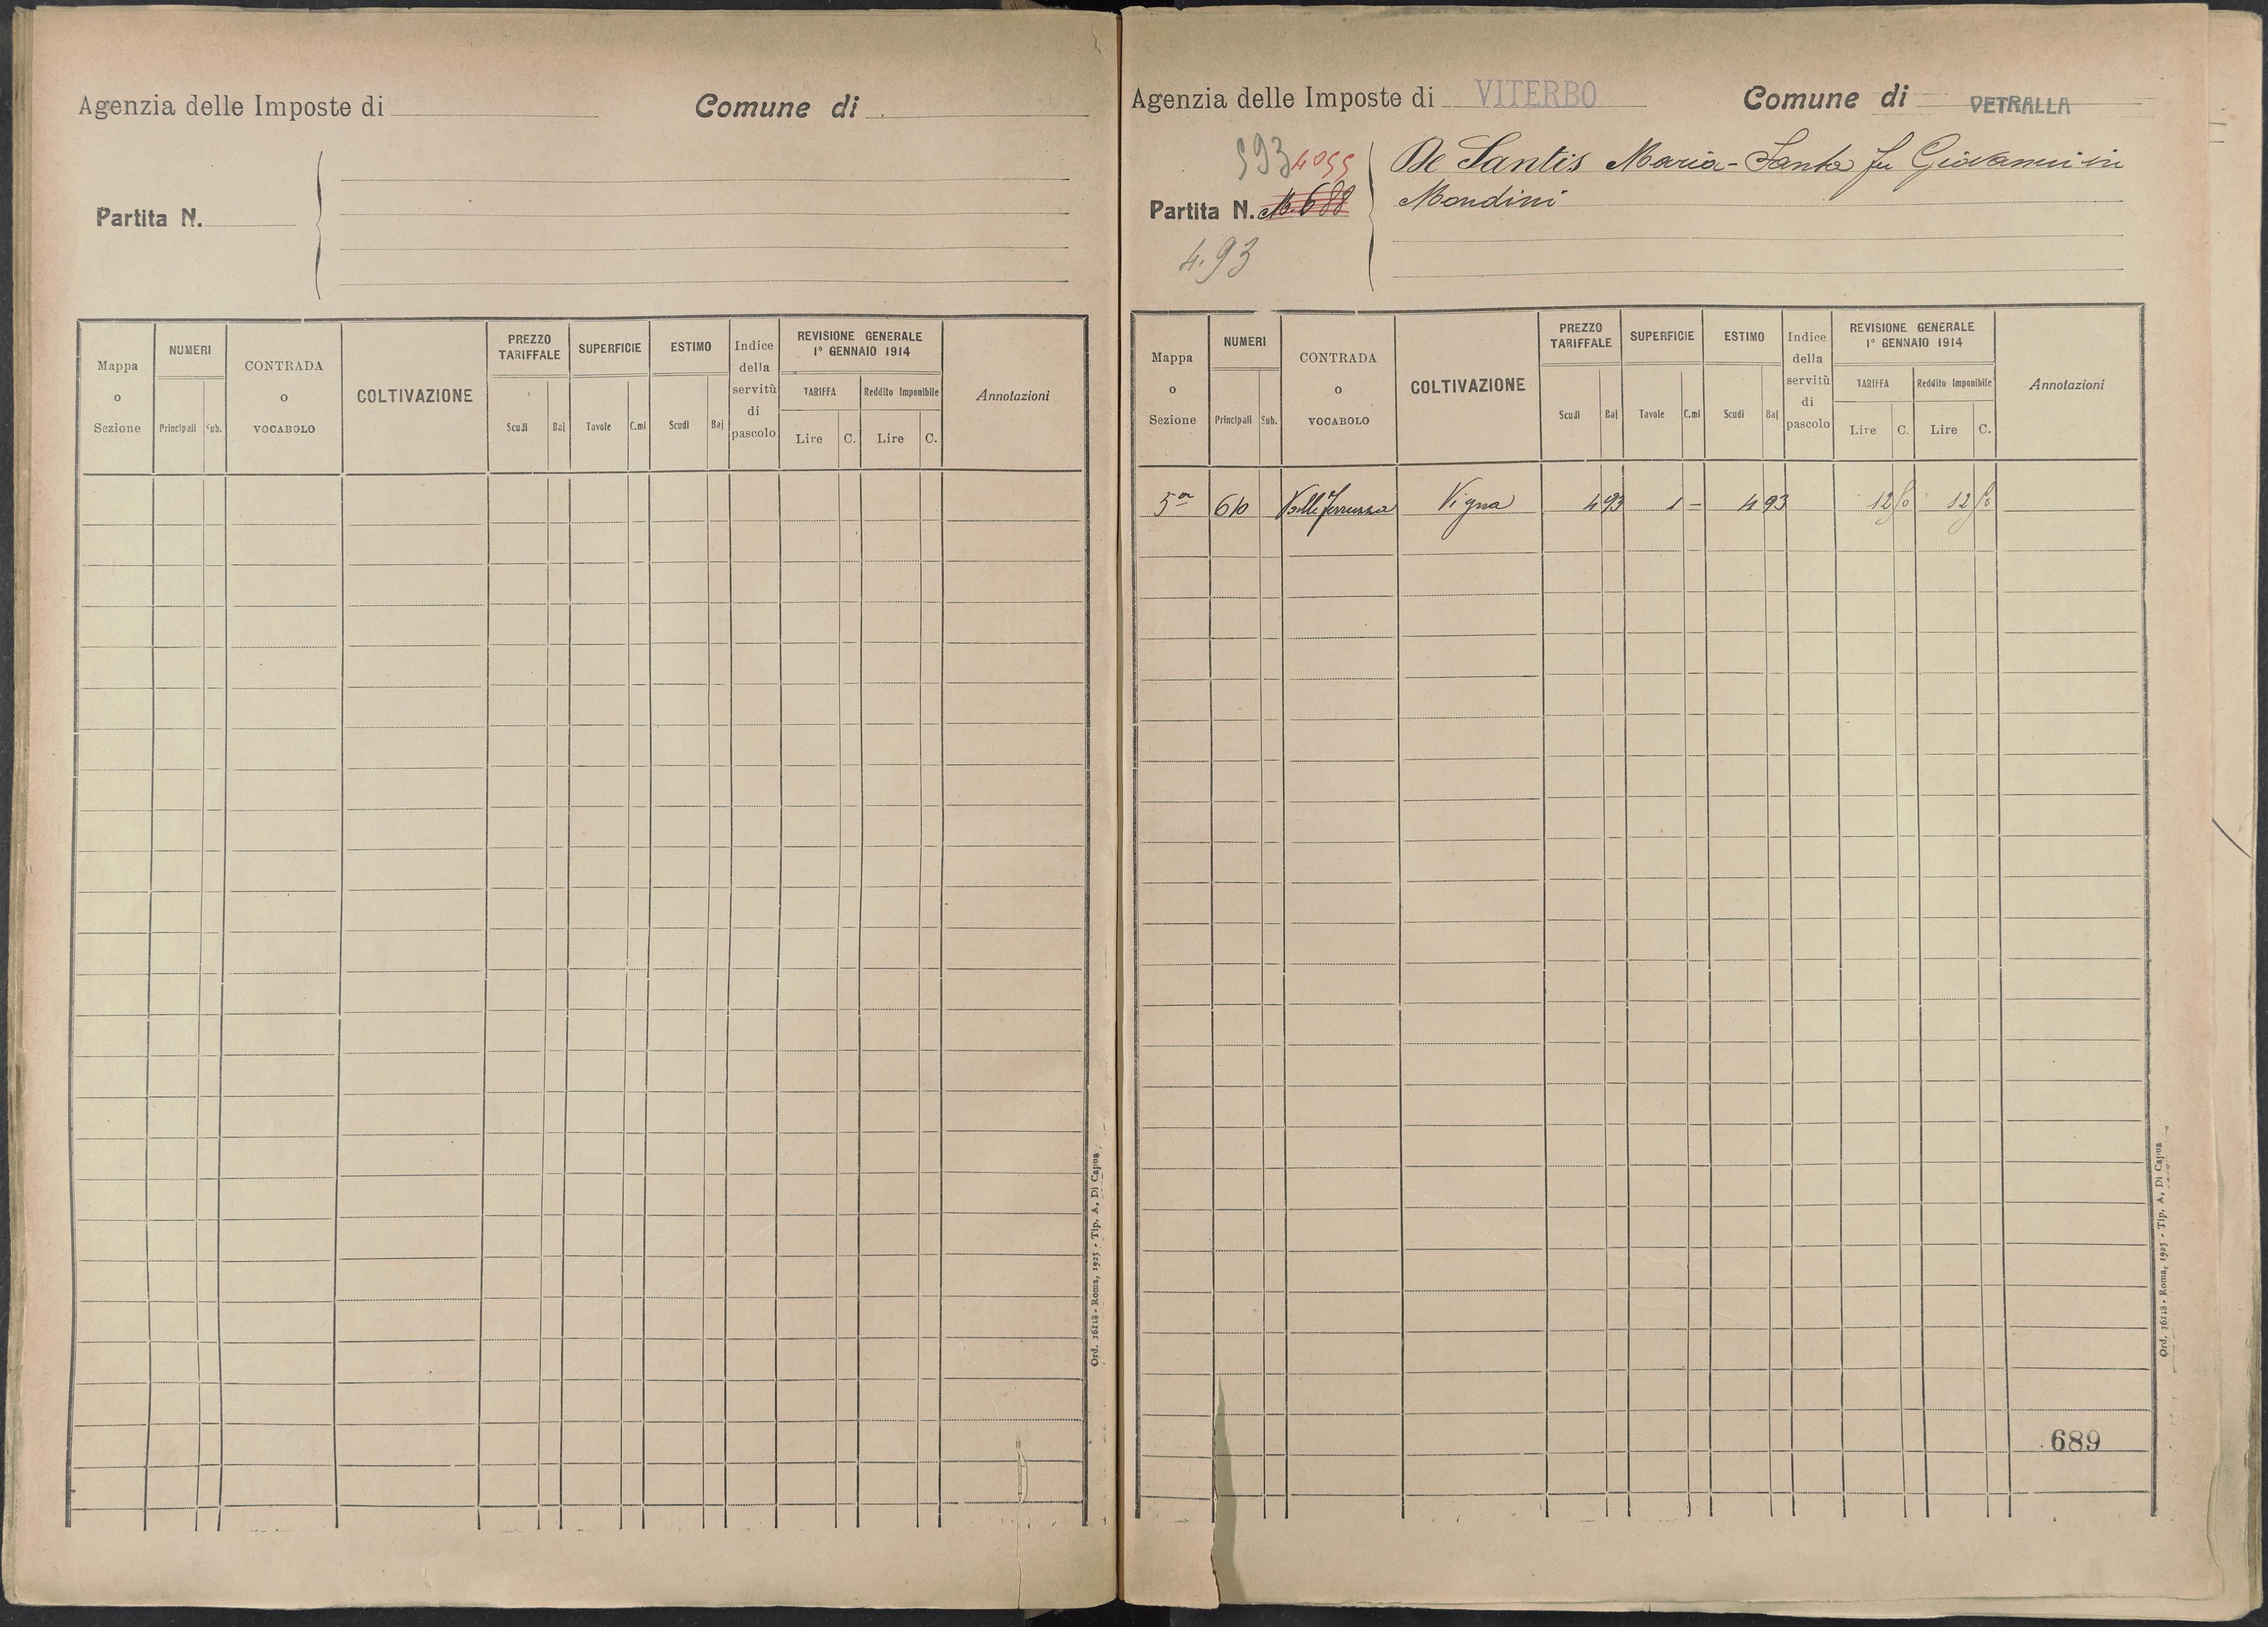 Agenzia delle Imposte di
Comune di
Partita N.
Mappa o Sezione
NUMERI
Principali
Sub.
CONTRADA o VOCABOLO
COLTIVAZIONE
PREZZO TARIFFALE
Scudi
Baj
SUPERFICIE
Tavole
C.mi
ESTIMO
Scudi
Baj
Indice della servitù di pascolo
REVISIONE GENERALE 1° GENNAIO 1914
TARIFFA
Lire
C.
Reddito Imponibile
Lire
C.
Annotazioni
Ord. 16118 - Roma, 1923 - Tip. A. Di Capua
Agenzia delle Imposte di VITERBO
Comune di VETRALLA
593 4055
Partita N.
4.93
De Santis Maria-Santa fu Giovanni in
Mondini
Mappa o Sezione
NUMERI
Principali
Sub.
CONTRADA o VOCABOLO
COLTIVAZIONE
PREZZO TARIFFALE
Scudi
Baj
SUPERFICIE
Tavole
C.mi
ESTIMO
Scudi
Baj
Indice della servitù di pascolo
REVISIONE GENERALE 1° GENNAIO 1914
TARIFFA
Lire
C.
Reddito Imponibile
Lire
C.
Annotazioni
5a 610 Valle Vigna 4 93 1 - 4 93 12 50 12 50
689
Ord. 16118 - Roma, 1923 - Tip. A. Di Capua